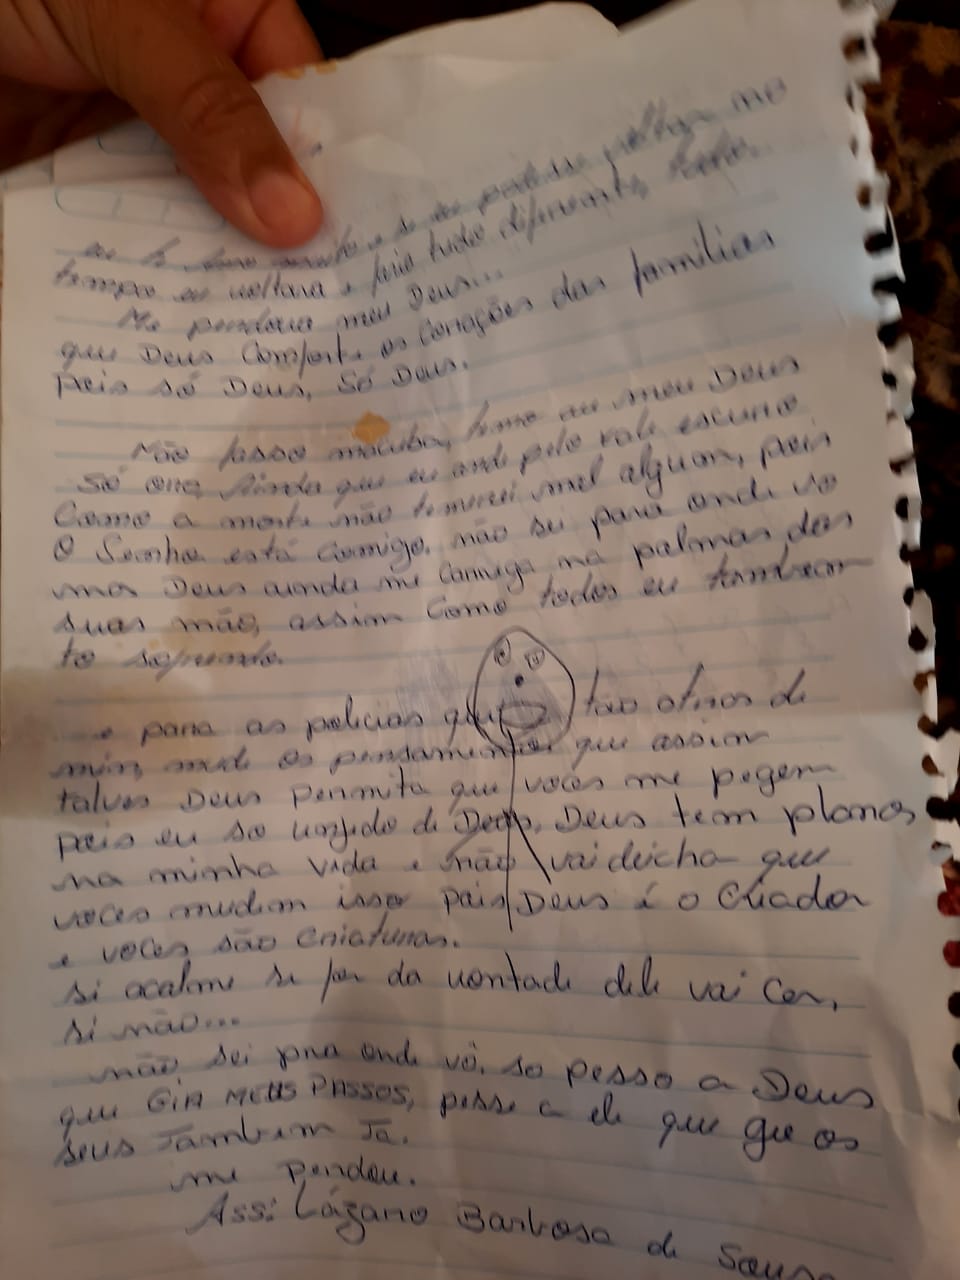 eu te amo muito, e se eu pudesse voltar no
tempo eu voltara e faria tudo diferente, tudo...
Me perdoua meu Deus...
que Deus Comforte os Corações das famílias
pois só Deus, Só Deus.
Não fasso macuba, temo ao meu Deus
Só oro, Ainda que eu ande pelo vale escuro
Como a morte não temerei mal algum, pois
O Senhor está Comigo. não sei para onde vo
mas Deus ainda me Carrega na palmas das
suas mão, assim Como todos eu tambem
to sofrendo.
e para as policias que tão atras de
mim, mude os pensamentos que assim
talves Deus permita que voces me pegem
pois eu so ungido de Deus, Deus tem planos
na minha vida e não vai deicha que
voces mudem isso pois Deus é o Criador
e voces são Criaturas.
si acalme se for da vontade dele vai Cer,
si não...
não sei pra onde vô, so pesso a Deus
que GIA MEUS PASSOS, pesse a ele que gie os
seus Tambem Ta.
me perdoe.
Ass: Lázaro Barbosa de Sousa